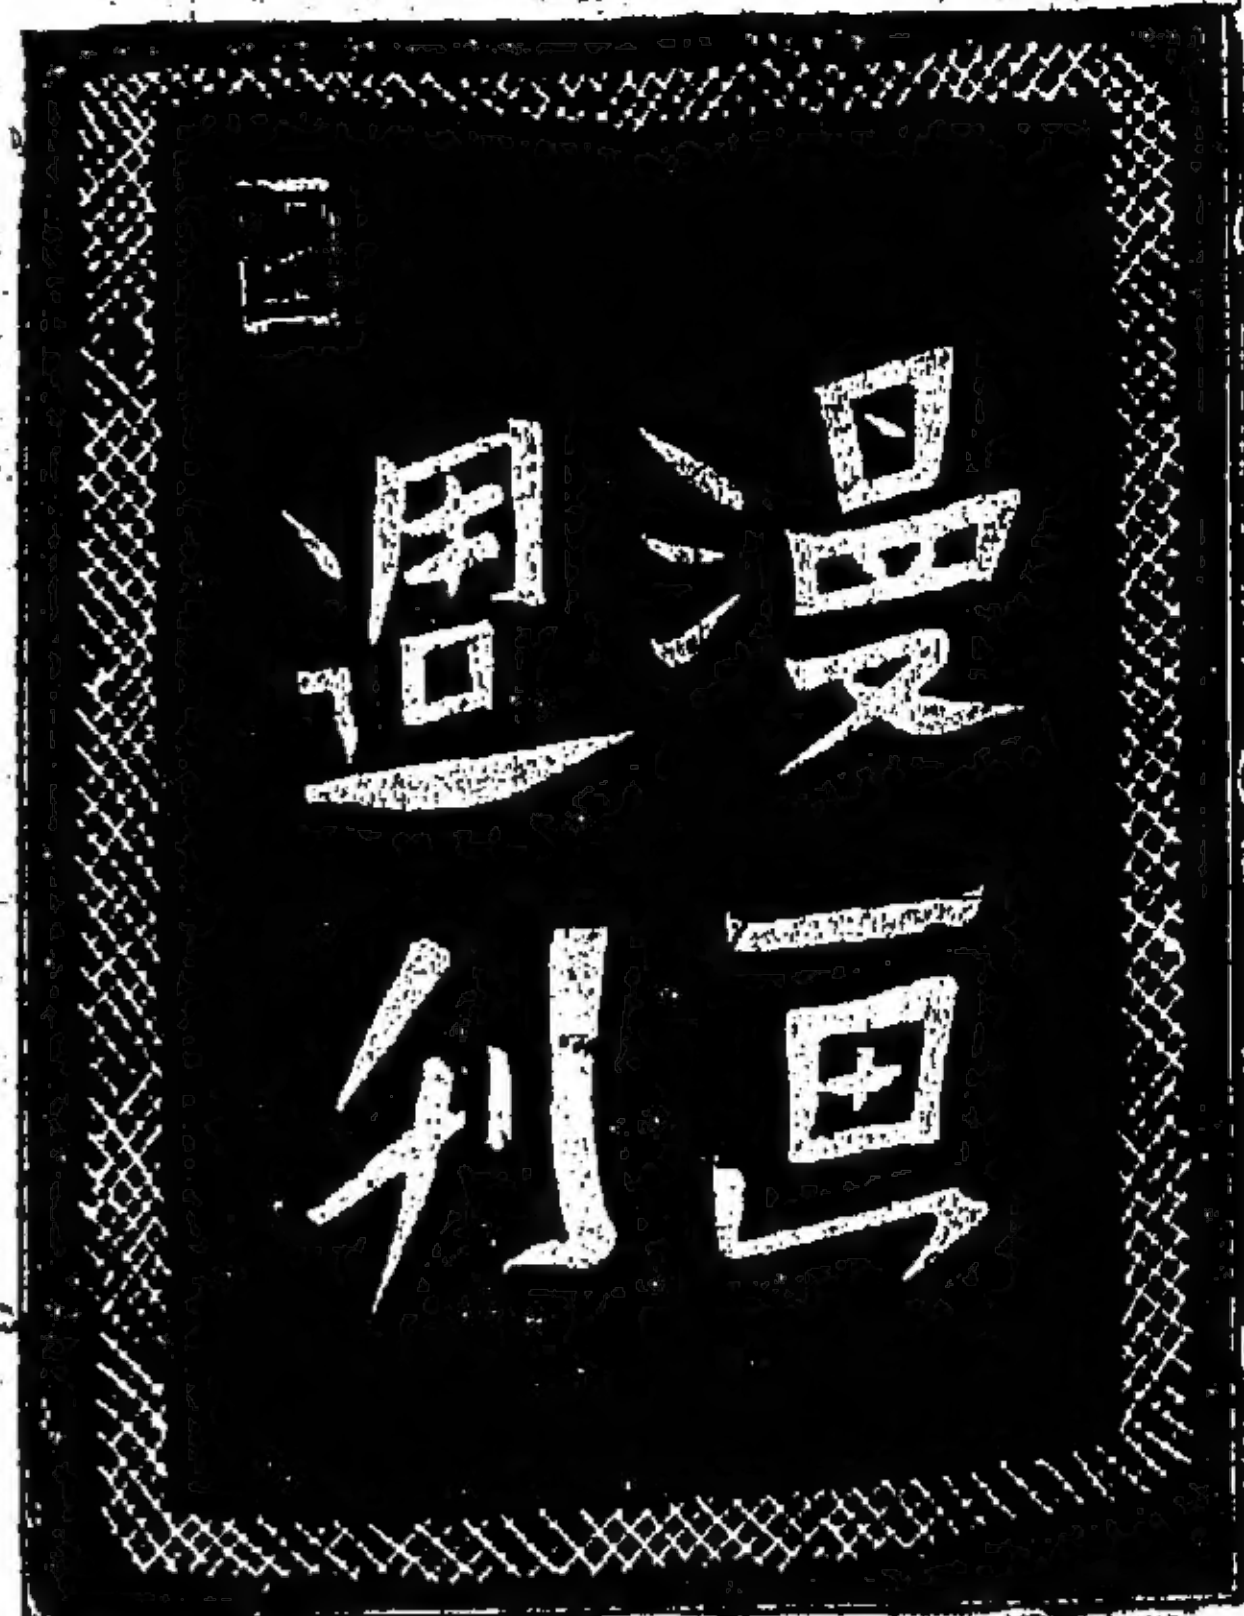 漫画
週刊